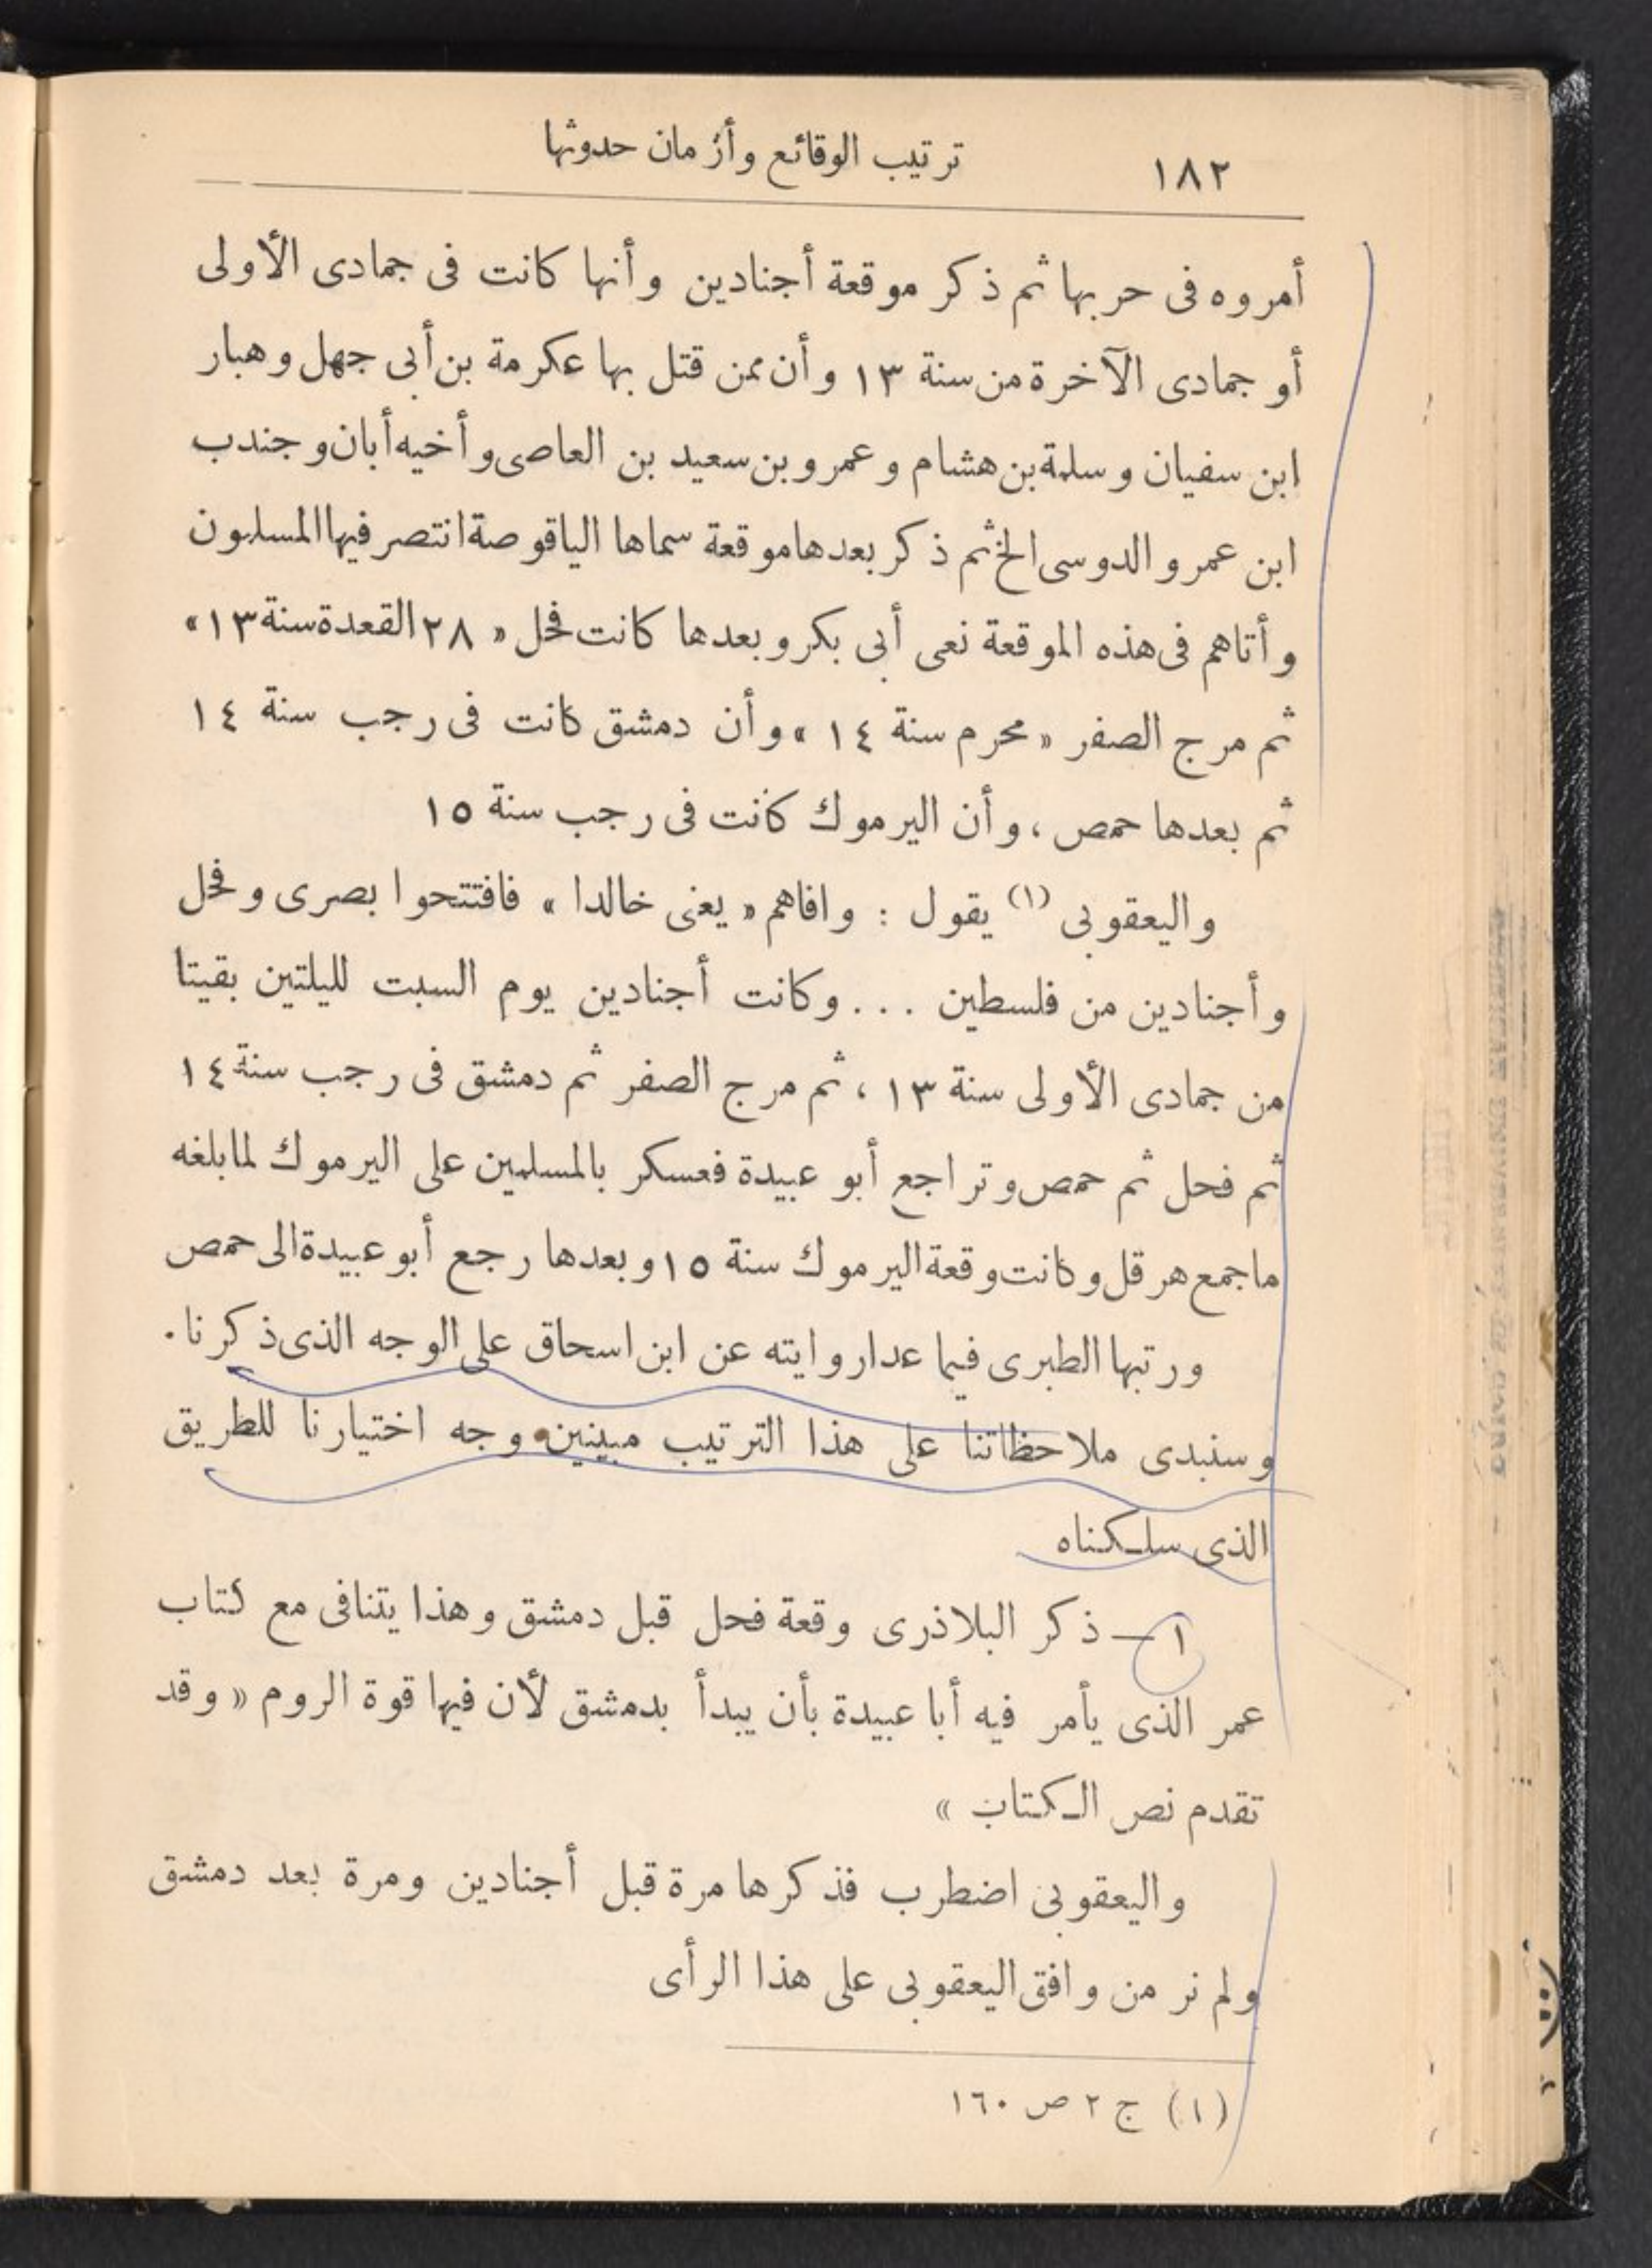 ١٨٢ ترتيب الوقائع وأزمان حدوثها
أمروه فى حربها ثم ذكر موقعة أجنادين وأنها كانت فى جمادى الأولى
أو جمادى الآخرة من سنة ١٣ وأن ممن قتل بها عكرمة بن أبى جهل وهبار
ابن سفيان وسلمة بن هشام وعمرو بن سعيد بن العاصى وأخيه أبان وجندب
ابن عمرو الدوسى الخ ثم ذكر بعدها موقعة سماها الياقوصة انتصر فيها المسلمون
وأتاهم فى هذه الموقعة نعى أبى بكر وبعدها كانت فحل « ٢٨ القعدة سنة ١٣ »
ثم مرج الصفر « محرم سنة ١٤ » وأن دمشق كانت فى رجب سنة ١٤
ثم بعدها حمص ، وأن اليرموك كانت فى رجب سنة ١٥
واليعقوبى (١) يقول : وافاهم « يعنى خالدا » فافتتحوا بصرى وفحل
وأجنادين من فلسطين ... وكانت أجنادين يوم السبت لليلتين بقيتا
من جمادى الأولى سنة ١٣ ، ثم مرج الصفر ثم دمشق فى رجب سنة ١٤
ثم فحل ثم حمص وتراجع أبو عبيدة فعسكر بالمسلمين على اليرموك لما بلغه
ما جمع هرقل وكانت وقعة اليرموك سنة ١٥ وبعدها رجع أبو عبيدة الى حمص
ورتبها الطبرى فيما عدا روايته عن ابن اسحاق على الوجه الذى ذكرنا .
وسنبدى ملاحظاتنا على هذا الترتيب مبينين وجه اختيارنا للطريق
الذى سلكناه
١ — ذكر البلاذرى وقعة فحل قبل دمشق وهذا يتنافى مع كتاب
عمر الذى يأمر فيه أبا عبيدة بأن يبدأ بدمشق لأن فيها قوة الروم « وقد
تقدم نص الكتاب »
واليعقوبى اضطرب فذكرها مرة قبل أجنادين ومرة بعد دمشق
ولم نر من وافق اليعقوبى على هذا الرأى
(١) ج ٢ ص ١٦٠